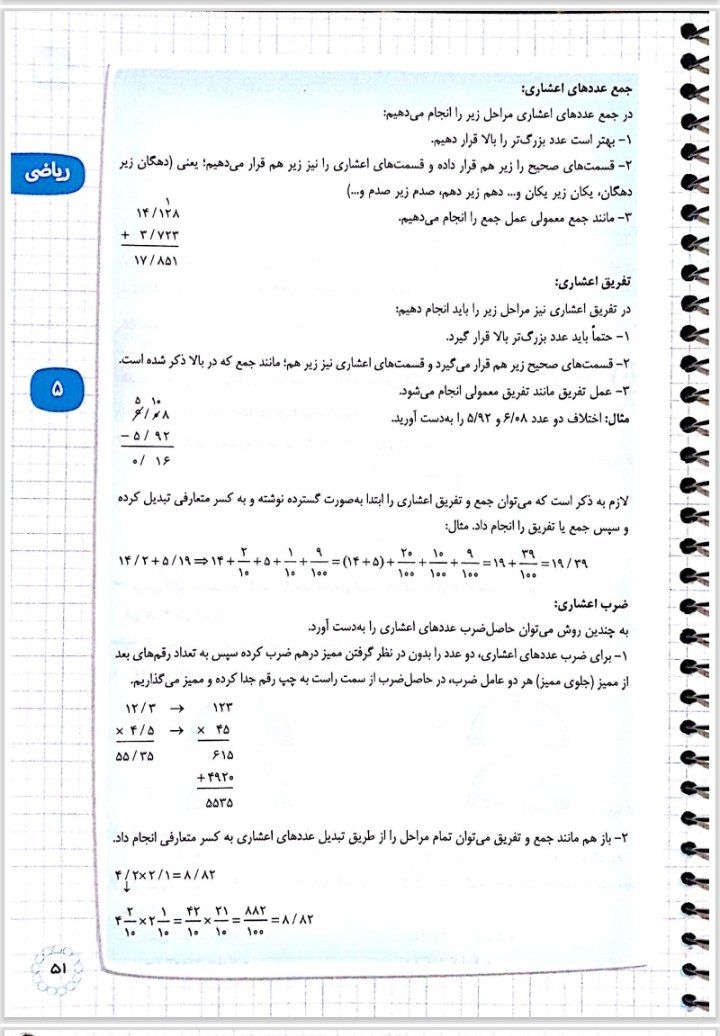 جمع عددهای اعشاری:
در جمع عددهای اعشاری مراحل زیر را انجام می‌دهیم:
۱- بهتر است عدد بزرگ‌تر را بالا قرار دهیم.
۲- قسمت‌های صحیح را زیر هم قرار داده و قسمت‌های اعشاری را نیز زیر هم قرار می‌دهیم؛ یعنی (دهگان زیر
دهگان، یکان زیر یکان و... دهم زیر دهم، صدم زیر صدم و...)
۳- مانند جمع معمولی عمل جمع را انجام می‌دهیم.
۱
۱۴/۱۲۸
+ ۳/۷۲۳
۱۷/۸۵۱
ریاضی
تفریق اعشاری:
در تفریق اعشاری نیز مراحل زیر را باید انجام دهیم:
۱- حتماً باید عدد بزرگ‌تر بالا قرار گیرد.
۲- قسمت‌های صحیح زیر هم قرار می‌گیرد و قسمت‌های اعشاری نیز زیر هم؛ مانند جمع که در بالا ذکر شده است.
۳- عمل تفریق مانند تفریق معمولی انجام می‌شود.
مثال: اختلاف دو عدد ۶/۰۸ و ۵/۹۲ را به‌دست آورید.
۵ ۱۰
۶/۰۸
- ۵/۹۲
۰/۱۶
۵
لازم به ذکر است که می‌توان جمع و تفریق اعشاری را ابتدا به‌صورت گسترده نوشته و به کسر متعارفی تبدیل کرده
و سپس جمع یا تفریق را انجام داد. مثال:
۱۴/۲+۵/۱۹ ⇒ ۱۴+۲/۱۰+۵+۱/۱۰+۹/۱۰۰=(۱۴+۵)+۲۰/۱۰۰+۱۰/۱۰۰+۹/۱۰۰=۱۹+۳۹/۱۰۰=۱۹/۳۹
ضرب اعشاری:
به چندین روش می‌توان حاصل‌ضرب عددهای اعشاری را به‌دست آورد.
۱- برای ضرب عددهای اعشاری، دو عدد را بدون در نظر گرفتن ممیز درهم ضرب کرده سپس به تعداد رقم‌های بعد
از ممیز (جلوی ممیز) هر دو عامل ضرب، در حاصل‌ضرب از سمت راست به چپ رقم جدا کرده و ممیز می‌گذاریم.
۱۲/۳ → ۱۲۳
× ۴/۵ → × ۴۵
۵۵/۳۵ ۶۱۵
+۴۹۲۰
۵۵۳۵
۲- باز هم مانند جمع و تفریق می‌توان تمام مراحل را از طریق تبدیل عددهای اعشاری به کسر متعارفی انجام داد.
۴/۲×۲/۱=۸/۸۲
↓
۴ ۲/۱۰×۲ ۱/۱۰=۴۲/۱۰×۲۱/۱۰=۸۸۲/۱۰۰=۸/۸۲
۵۱